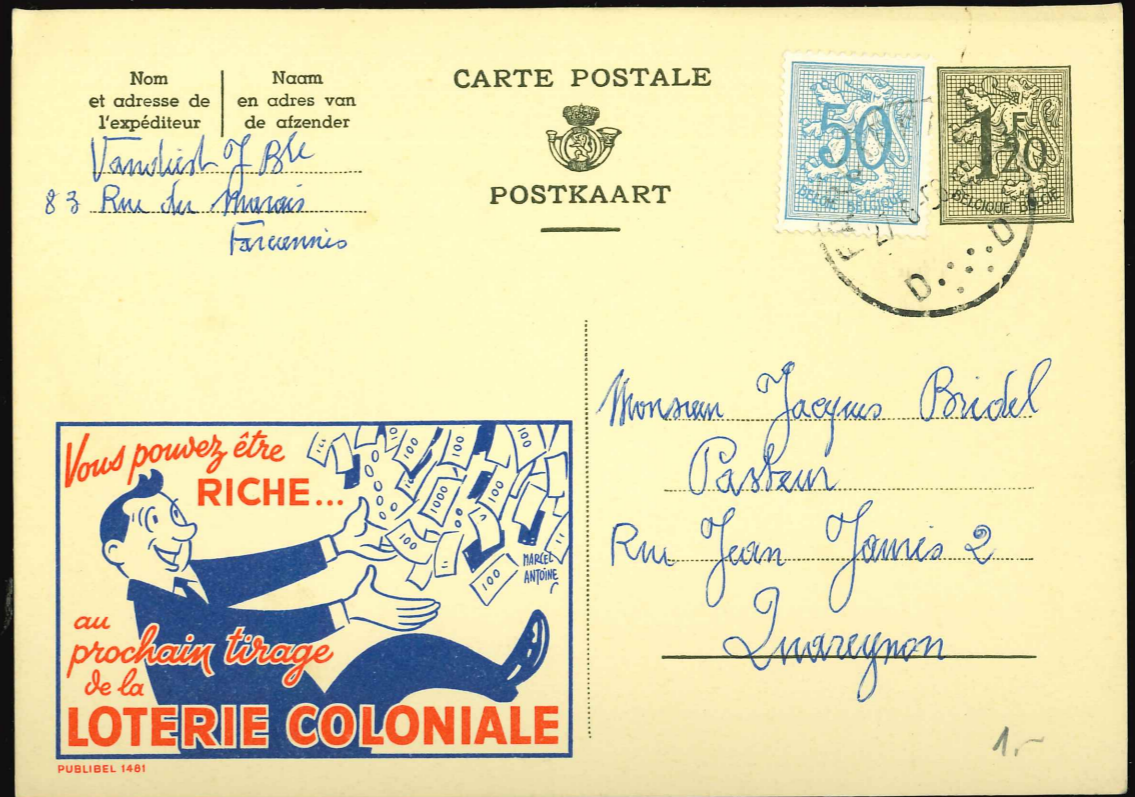 Nom
et adresse de
l'expéditeur
Naam
en adres van
de afzender
83 Rue du Marais
Farciennes
CARTE POSTALE
POSTKAART
50
BELGIE BELGIQUE
1F20
BELGIQUE BELGIË
D D
Monsieur Jacques Bridel
Pasteur
Rue Jean Jaurès 2
Quaregnon
Vous pouvez être
RICHE...
100
1000
MARCEL
ANTOINE
au
prochain tirage
de la
LOTERIE COLONIALE
PUBLIBEL 1481
1,-